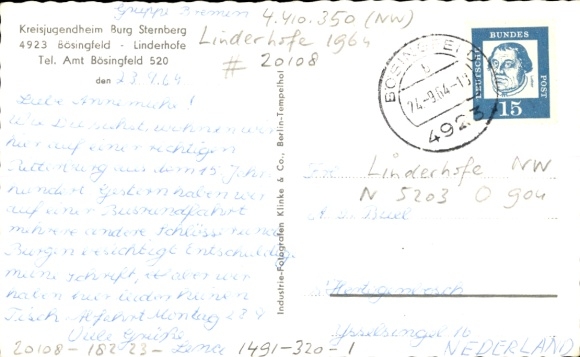 Gruppe Bremen
4.410.350 (NW)
Kreisjugendheim Burg Sternberg
4923 Bösingfeld - Linderhofe
Tel. Amt Bösingfeld 520
Linderhofe 1964
# 20108
den 23.9.64
Liebe Annemieke!
Wie Du siehst, wohnen wir
hier auf einer richtigen
Ritterburg aus dem 15. Jahr
hundert. Gestern haben wir
auf einer Busrundfahrt
mehrere andere Schlösser und
Burgen besichtigt. Entschuldige
meine Schrift, aber wir
haben hier leider keinen
Tisch. Abfahrt Montag
Viele Grüße
20108-182-23-
1491-320-1
Industrie-Fotografen Klinke & Co., Berlin-Tempelhof
BÖSINGFELD
b
24.-9.64-1
4923
DEUTSCHE
BUNDES
POST
15
Linderhofe NW
N 5203 O 904
A. de Buel
Hertogenbosch
Ysselsingel 16
NEDERLAND